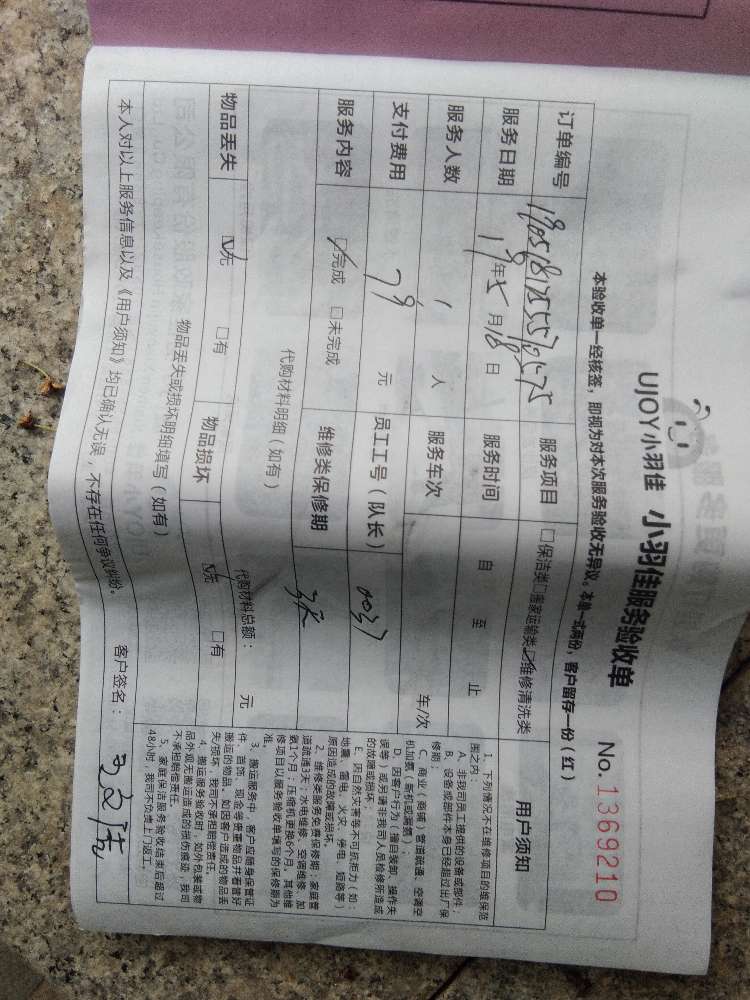 UJOY小羽佳 小羽佳服务验收单
No.1369210
本验收单一经核签，即视为对本次服务验收无异议。本单一式两份，客户留存一份（红）
订单编号 服务项目 □保洁类□搬家运输类☑维修清洗类
服务日期 19年5月18日 服务时间 自 至 止
服务人数 1 人 服务车次 车/次
支付费用 79 元 员工工号（队长） 0037
服务内容 ☑完成 □未完成 维修类保修期
代购材料明细（如有） 代购材料总额： 元
物品丢失 ☑无 □有 物品损坏 ☑无 □有
物品丢失或损坏明细填写（如有）
本人对以上服务信息以及《用户须知》均已确认无误，不存在任何争议纠纷。 客户签名：
用户须知
1、下列情况不在维修项目的维保范
围之内：
A、非我司员工提供的设备或部件；
B、设备或部件本身已经超过出厂保
修期；
C、商业（商铺）管道疏通、空调空
机加氟（新机或漏氟）；
D、因客户行为（擅自装卸、操作失
误等）或另请非我司人员检修所造成
的故障或损坏；
E、因自然灾害等不可抗拒力（如：
地震、雷电、火灾、停电、短路等）
原因造成的故障或损坏。
2、维修类服务免费保修期：家庭管
道疏通3天；水电维修、空调维修、加
氟1个月；压缩机更换6个月，其他维
修项目以服务验收单填写的保修期为
准。
3、搬运服务中，客户应随身保管证
件、首饰、现金等贵重物品并看管好
搬运的物品，如因客户造成的物品丢
失/损坏，我司不承担赔偿责任。
4、搬运服务验收时，如外包装或物
品外观无搬运造成的损伤痕迹，我司
不承担赔偿责任。
5、家庭保洁服务验收结束后超过
48小时，我司不负责上门返工。